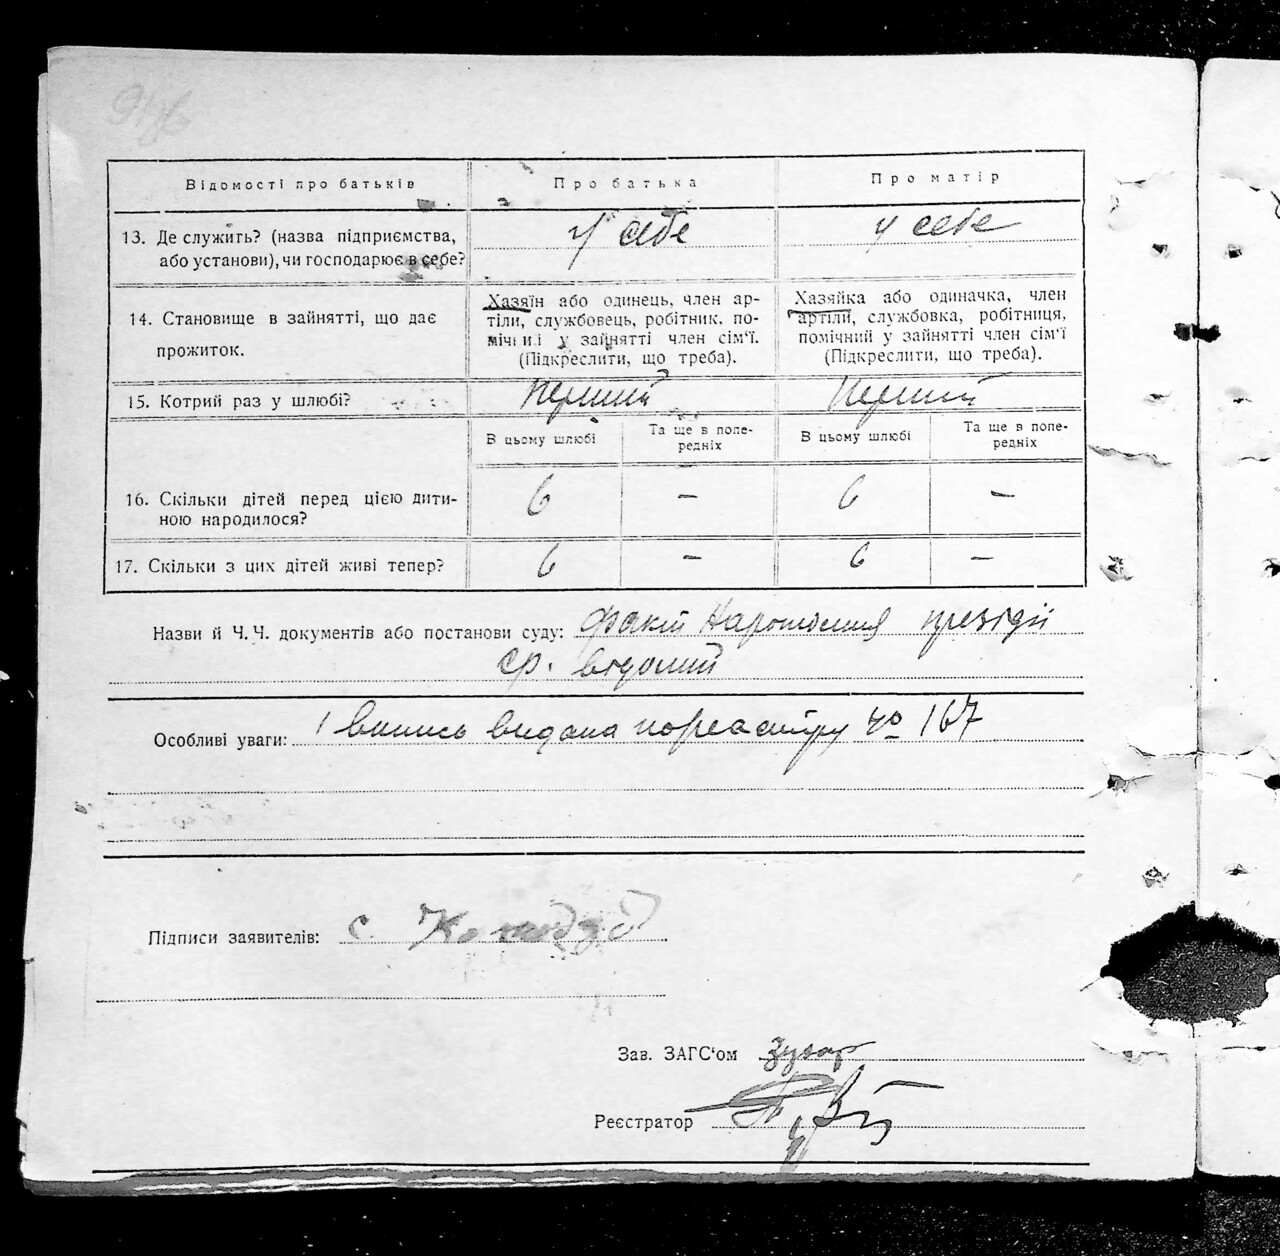 Відомості про батьків
Про батька
Про матір
13. Де служить? (назва підприємства,
або установи), чи господарює в себе?
у себе
у себе
14. Становище в зайнятті, що дає
прожиток.
Хазяїн або одинець, член ар-
тілі, службовець, робітник, по-
мічний у зайнятті член сім'ї.
(Підкреслити, що треба).
Хазяйка або одиначка, член
артілі, службовка, робітниця,
помічний у зайнятті член сім'ї
(Підкреслити, що треба).
15. Котрий раз у шлюбі?
Перший
Перший
В цьому шлюбі
Та ще в попе-
редніх
В цьому шлюбі
Та ще в попе-
редніх
16. Скільки дітей перед цією дити-
ною народилося?
6
–
6
–
17. Скільки з цих дітей живі тепер?
6
–
6
–
Назви й Ч. Ч. документів або постанови суду: Факт народження президії
с/р. відомий
Особливі уваги: Випись видана по реєстру № 167
Підписи заявителів: С.
Зав. ЗАГС'ом
Реєстратор